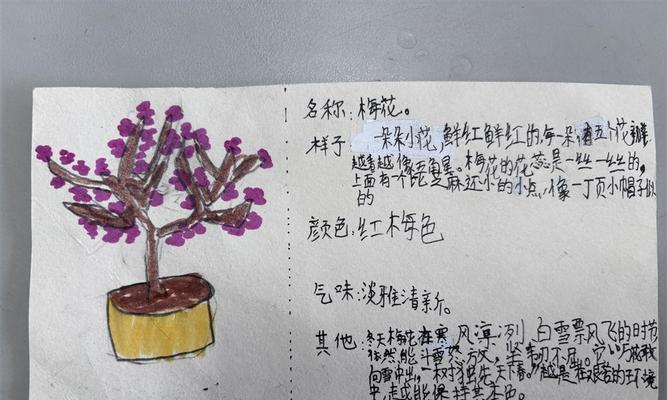 名称:梅花。
样子:一朵朵小花,鲜红鲜红的,每一朵有五个花瓣
越看越像五角星。梅花的花蕊是一丝一丝的,
上面有一个比芝麻还小的小点,像一丁页小帽子似
的
颜色:红梅色
气味:淡雅清新。
其他:冬天梅花在寒风凛冽,白雪飘飞的时节
依然能斗雪怒放,坚韧不屈。它
向雪中出,一枝独先天下春。"越是在艰苦的环境
中,越能保持其本色。